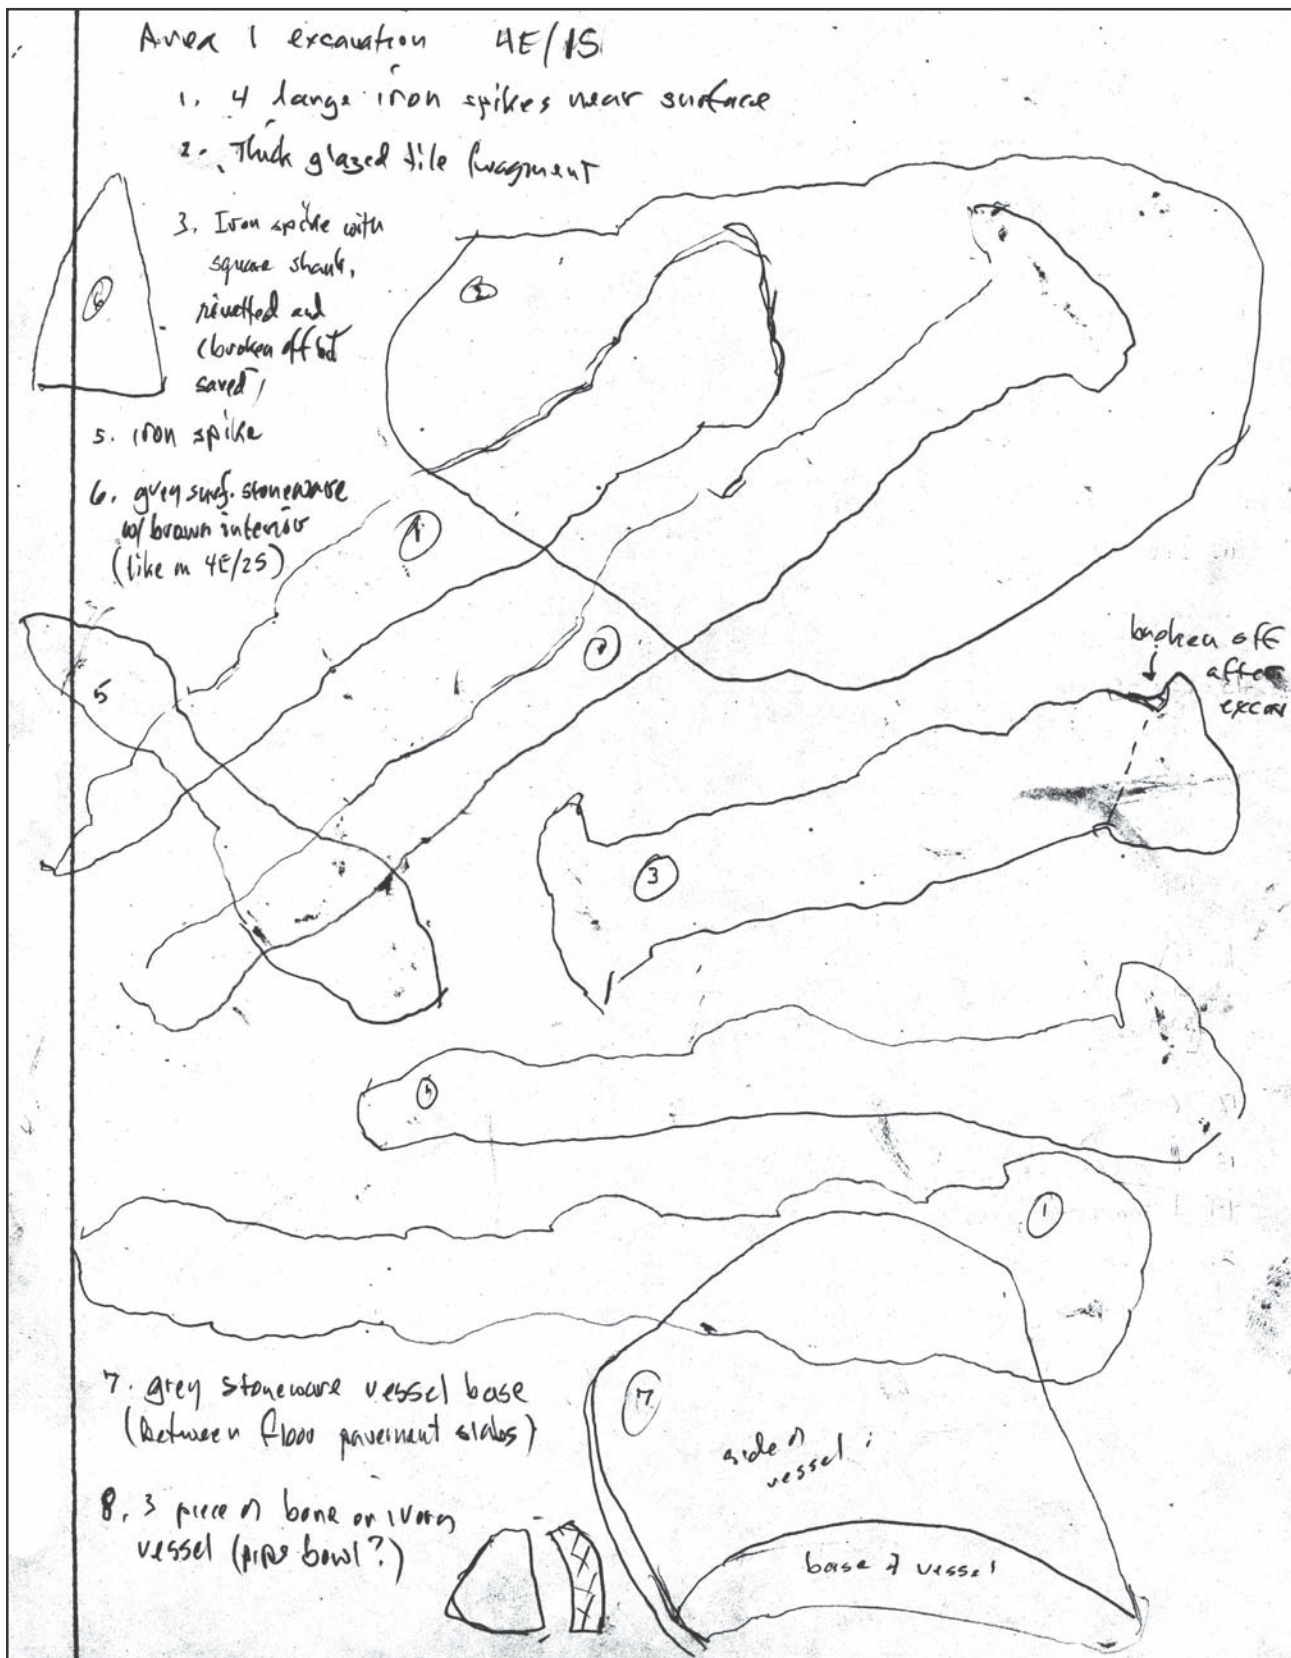 Area 1 excavation 4E/1S
1. 4 large iron spikes near surface
2. Thick glazed tile fragment
3. Iron spike with
square shank,
rivetted and
(broken off but
saved)
5. iron spike
6. grey surf. stoneware
w/ brown interior
(like in 4E/2S)
6
2
1
5
broken off
after
excav
3
4
1
7. grey stoneware vessel base
(between floor pavement slabs)
7
side of
vessel
8. 3 piece of bone or ivory
vessel (pipe bowl?)
base of vessel